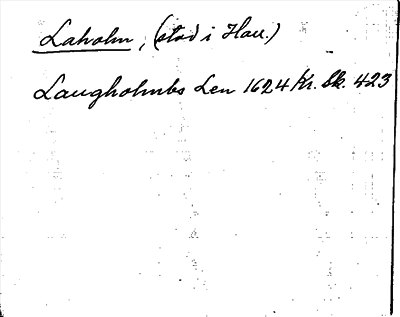 Laholm, (stad i Hall.)
Laugholmbs Len 1624 Kr. Sk. 423